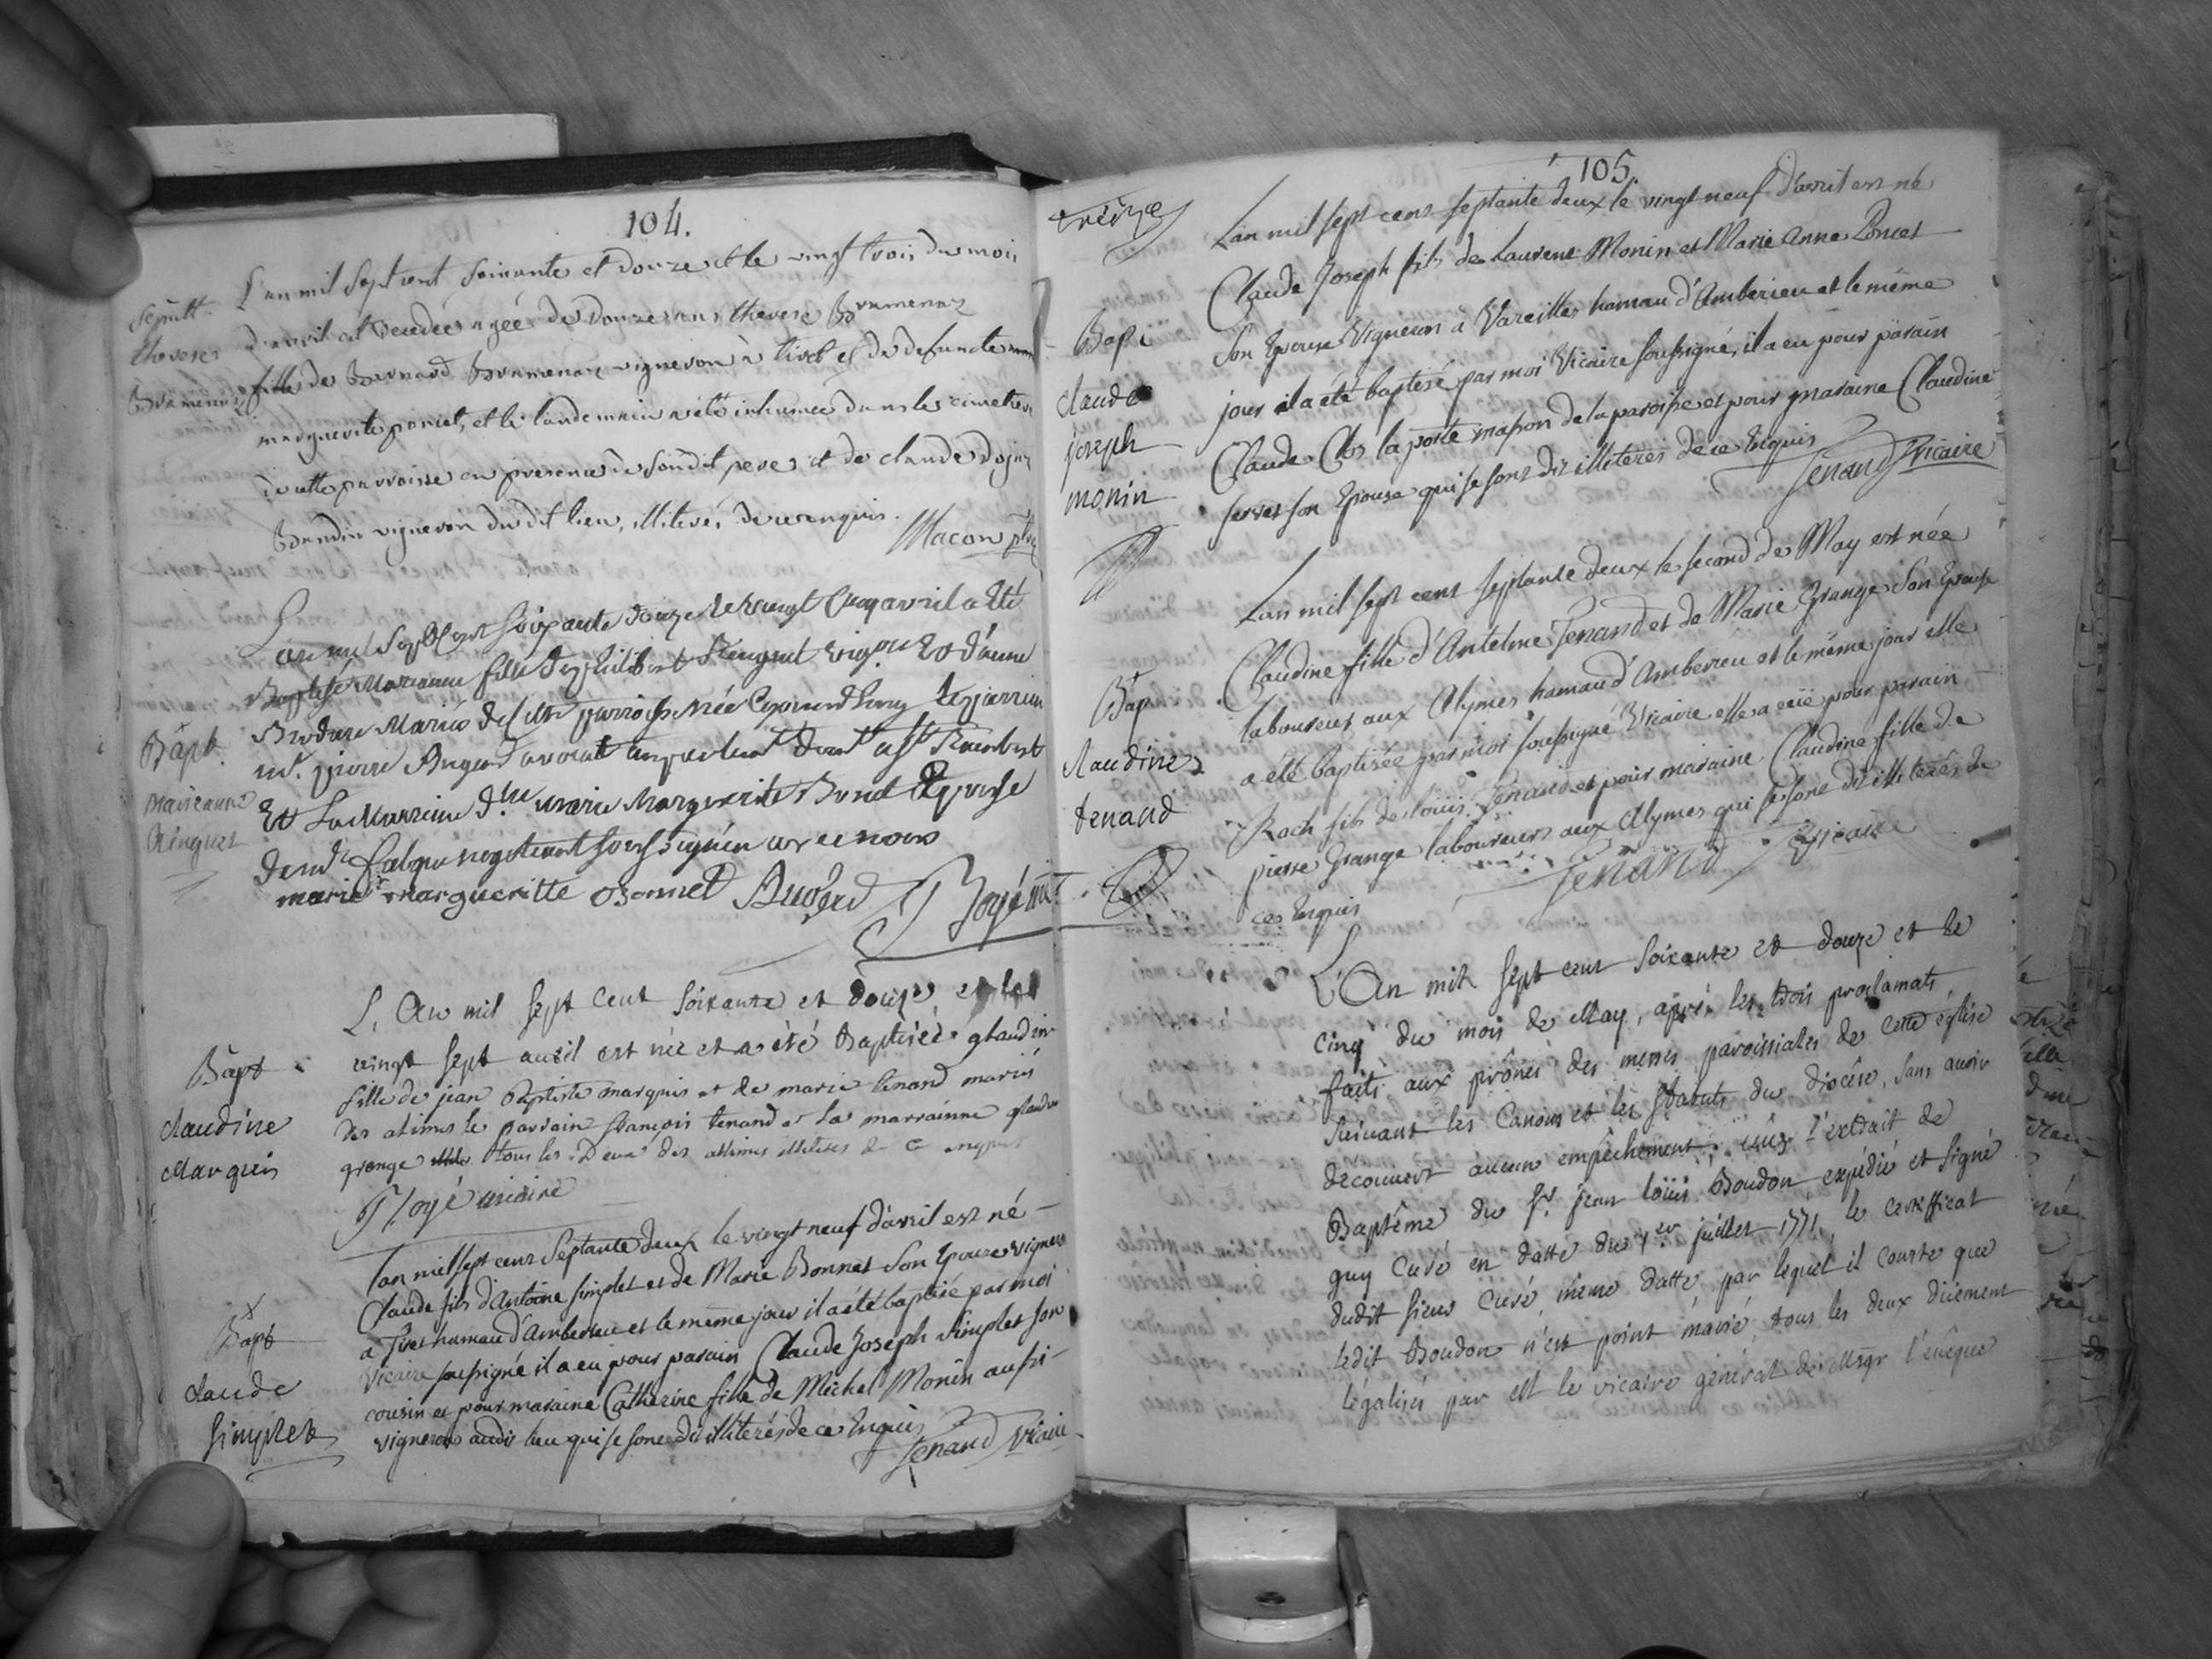 104.
Sepult.
therese
Bramenaz
L'an mil sept cent soixante et douze et le vingt trois du mois
d'avril est decedée agée de douze ans therese Bramenaz
fille de Bernard Bramenaz vigneron à tiret et de defuncte
marguerite poncet, et le landemain a été inhumée dans le cimetiere
de cette parroisse en presence de sondit pere et de claude
Baudin vigneron du dit lieu, illiterés de ce enquis.
Macon
Bapt.
marieanne
L'an mil sept cent soixante douze le vingt cinq avril a été
Baptisé Marianne fille de philibert
mariés de cette parroisse née
mr. pierre Augerd avocat au parlement de
Et La Marraine d.lle marie Marguerite Bonnet Epouse
de mr. negotiant soussignéz avec nous
marie Margueritte Bonnet Augerd
Bapt
claudine
Marquis
L'An mil sept cent soixante et douze et le
vingt sept avril est née et a été Baptisée glaudine
fille de jean Baptiste marquis et de marie tenand mariés
des alimes le parrain françois tenand et la marrainne glaudine
grange tous les Deux des allimes illiteres de ce enquis
vicaire
Bapt
claude
Simplet
L'an mil sept cent septante deux le vingt neuf d'avril est né
Claude fils d'Antoine simplet et de Marie Bonnet son Epouse vigneron
a Tiret hamau d'Amberieu et le même jour il a été baptisé par moi
Vicaire soussigné il a eu pour parain Claude Joseph Simplet son
cousin et pour maraine Catherine fille de Michel Monin aussi
vigneron audit lieu qui se sont dit illiterés de ce Enquis
Tenand Vicaire
105.
treize
Bapt
claude
joseph
monin
L'an mil sept cent septante deux le vingt neuf d'avril est né
Claude Joseph fils de Laurent Monin et Marie Anne Poncet
son Epouse Vigneron a Vareilles hamau d'Amberieu et le même
jour il a été baptisé par moi Vicaire soussigné, il a eu pour parain
Claude Clos la porte masson de la paroisse et pour maraine Claudine
servet son Epouse qui se sont dit illiterés de ce Enquis
Tenand Vicaire
Bap
claudine
tenand
L'an mil sept cent septante deux le second de May est née
Claudine fille d'Antelme Tenand et de Marie Grange son Epouse
laboureur aux Alymes hamau d'Amberieu et le même jour elle
a été baptisée par moi soussigné Vicaire elle a eüe pour parain
Roch fils de loüis Tenand et pour maraine Claudine fille de
pierre Grange laboureurs aux Alymes qui se sont dit illiterés de
ces Enquis
Tenand Vicaire
L'An mil sept cent soixante et douze et le
cinq du mois de May, après les trois proclamats
faits aux prônes des messes paroissiales de cette église
suivant les Canons et les statuts du diocèse, sans avoir
decouvert aucun empêchement, vûs l'extrait de
Baptême du Sr. jean loüis Boudon expédié et signé
guy Curé en datte du 1er juillet 1771, le certifficat
dudit sieur Curé même datte par lequel il conste que
ledit Boudon n'est point marié, tous les deux düement
légalisés par M le vicaire général de Msgr l'evêque